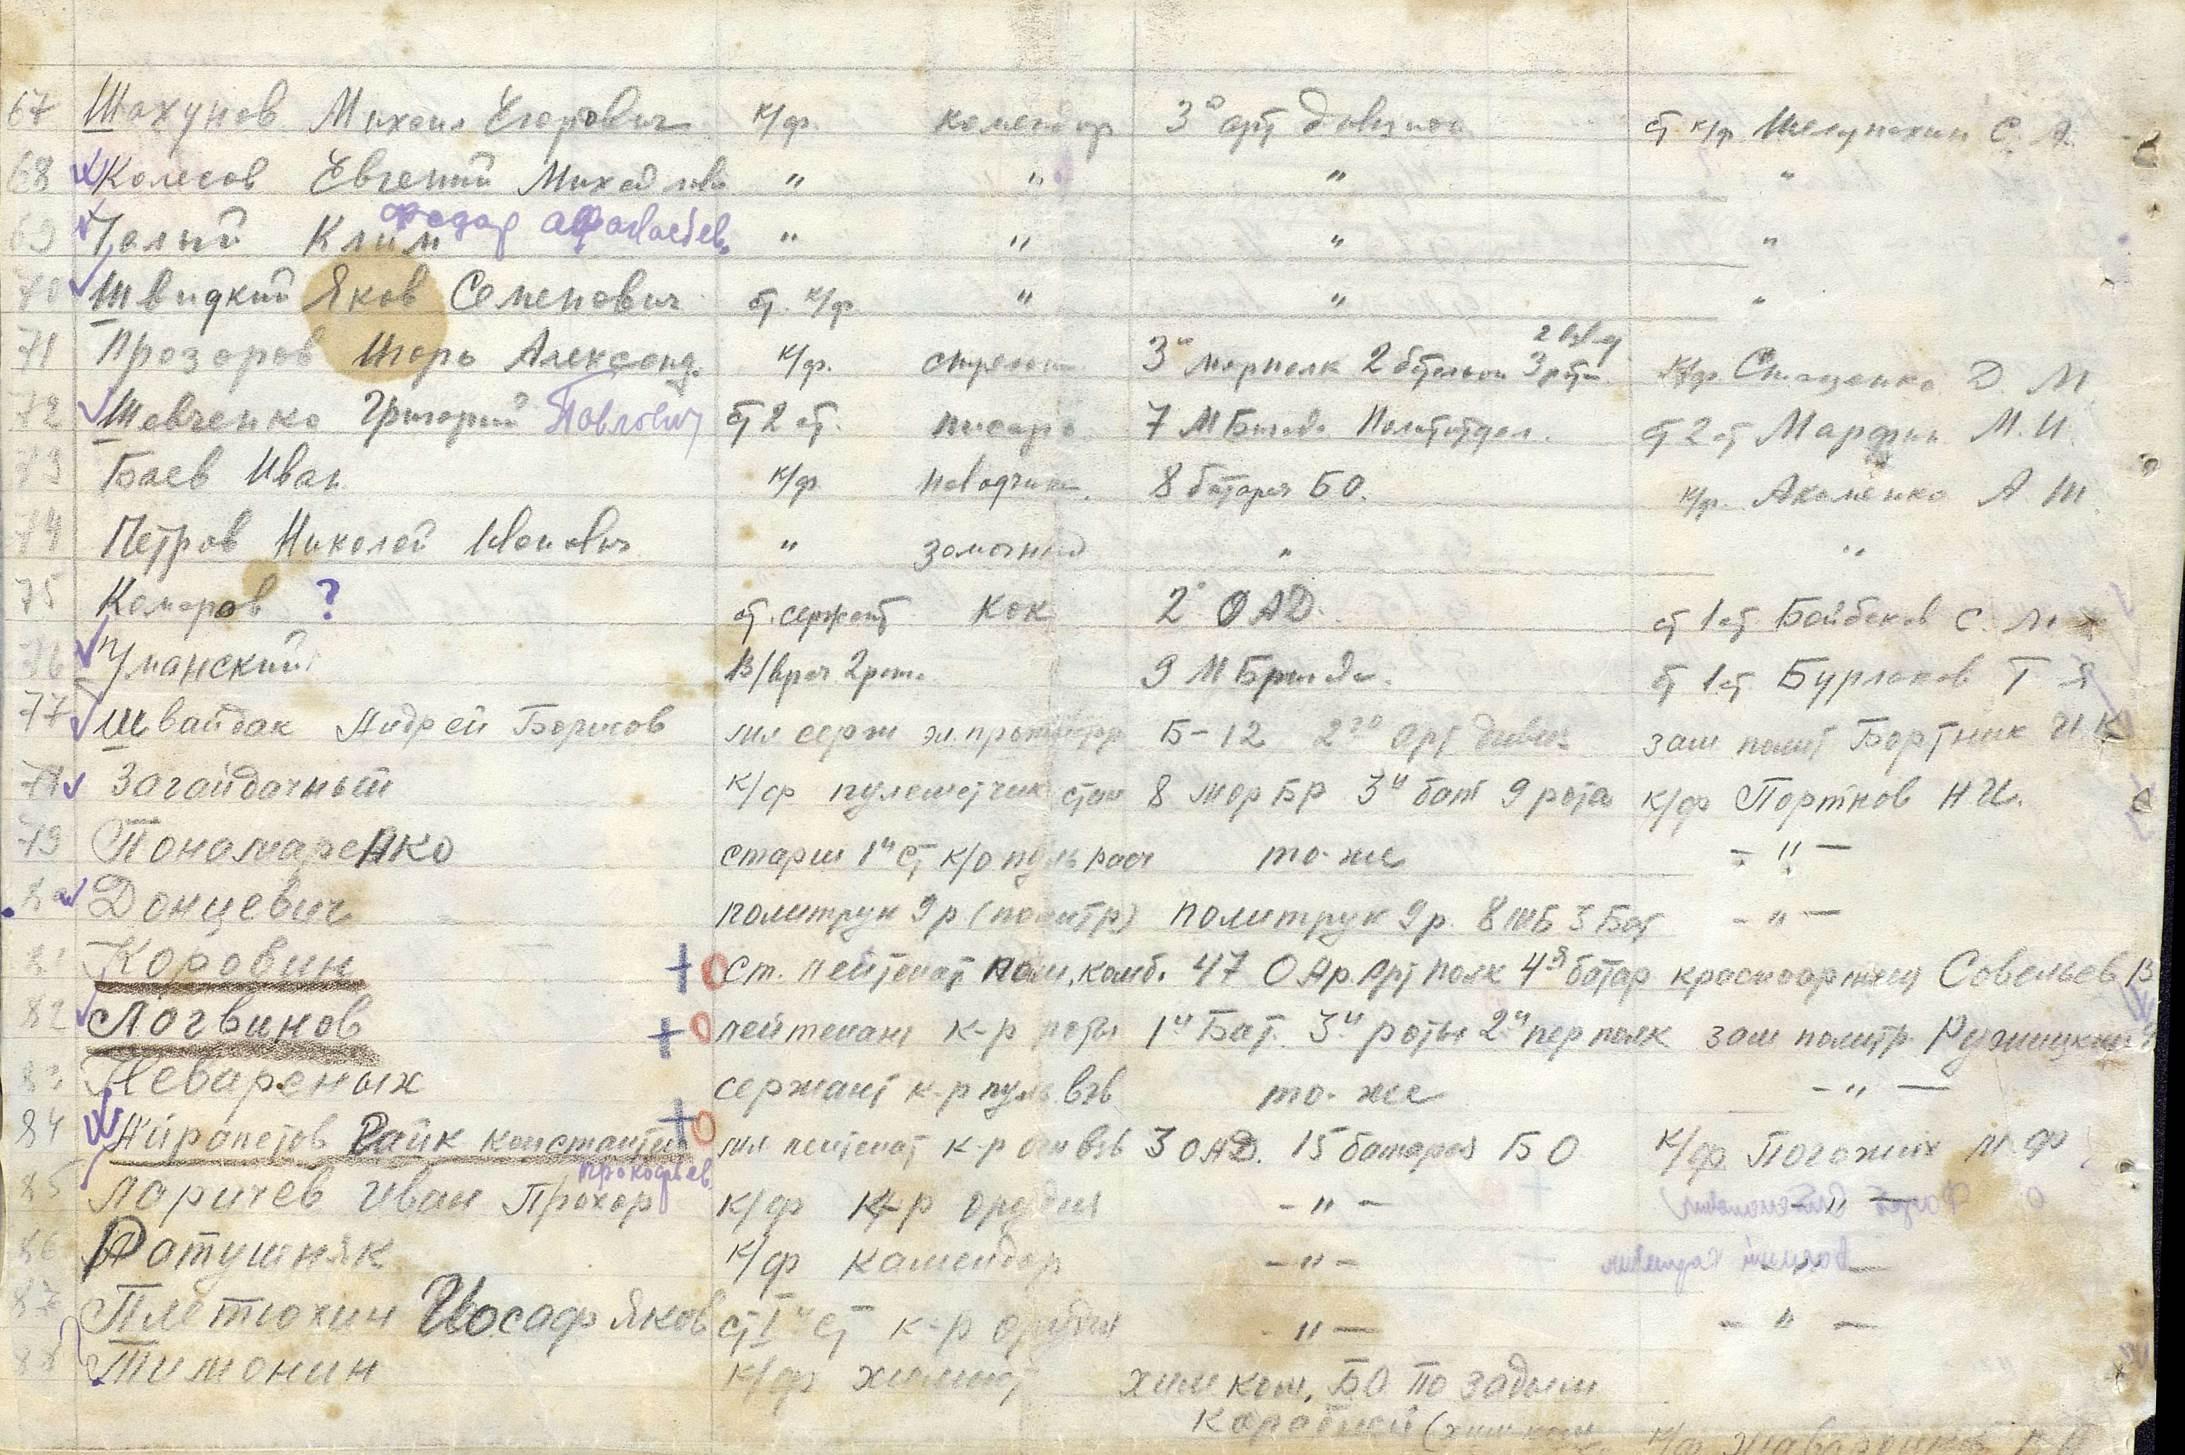 67 Шахунов Михаил Егорович к/ф. комендор 3й арт дивизион ст к/ф. С. А.
68 Колесов Евгений Михайлови " " " "
федор Афанасьев.
69 Голый Клим " " " "
70 Швидкий Яков Семенович ст. к/ф " " "
2 взвод
71 Прозоров Игорь Александ. к/ф. стрелок 3й морполк 2 батальон 3 роты к/ф Стаценко Д. М.
72 Шевченко Григорий Павлович ст 2 ст. писарь 7 М Бригада Политотдел. ст 2 ст Марфин М. И.
73 Баев Иван к/ф наводчик. 8 батарея БО. к/ф. Акименко А Ш.
74 Петров Николай Иванович " замочный " "
75 Комаров ? ст. сержант кок 2й ОАД. ст 1 ст Байбеков С.
76 Уманский В/врач 2 ранг. 9 М Бригады. ст 1 ст Бурлаков Т Я
77 Швайдак Андрей Борисов мл серж Б-12 2го арт дивиз зам полит Бортник И. К
78 Загайдачный к/ф пулеметчик стан 8 мор Бр 3й бат 9 рота к/ф Портнов Н И.
79 Понамаренко старш 1й ст к/о пуль расч то-же - " -
80 Донцевич политрук 9 р (политр) политрук 9 р. 8 МБ 3 Бат - " -
81 Коровин + О ст. лейтенат пом. комб. 47 О Ар. Арт полк 4я батар красноармеец Савельев В
82 Логвинов + О лейтенант к-р роты 1й Бат. 3й роты 2й пер полк зам политр. Ружицкий
83 Невареных сержант к-р пуль. взв то-же - " -
84 Айрапетов Гайк константин + О мл лейтенат к-р огн взв 3 ОАД. 15 батарея БО к/ф. Погожих М Ф
прокофьев.
85 Ларичев Иван Прохор к/ф к-р орудия - " - - " -
86 Ратушняк к/ф камендор - " - - " -
87 Плетюхин Иосаф Яков ст 1й ст к-р орудия - " - - " -
88 Тимонин к/ф химист хим ком. БО по задым
кораблей (хим ком к/ф